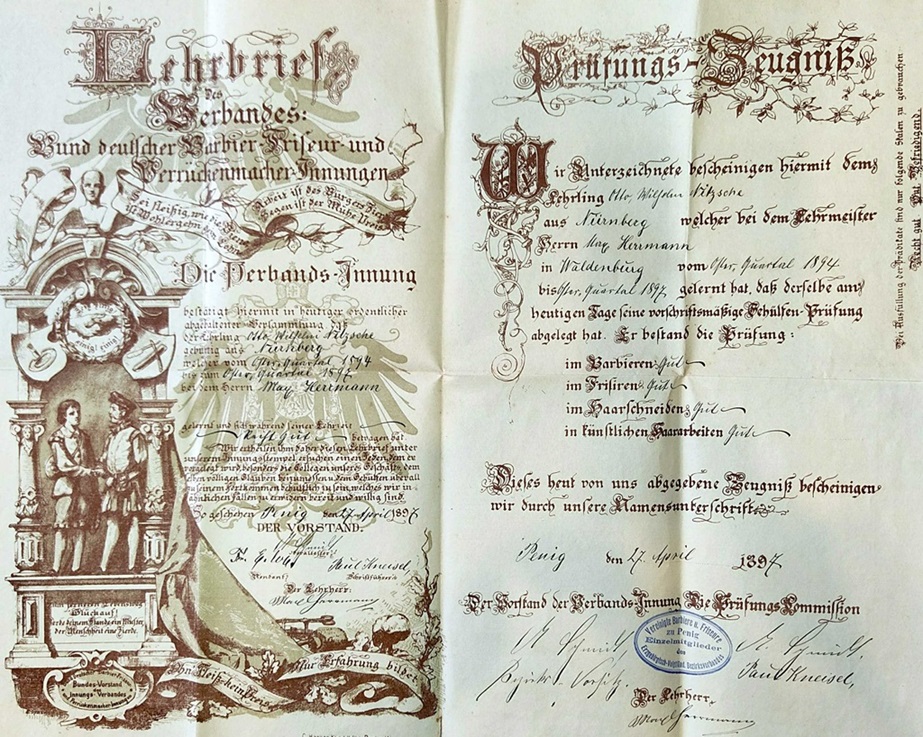 Lehrbrief
des
Verbandes:
Bund deutscher Barbier-Friseur- und
Perrückenmacher-Innungen
Arbeit ist des Bürgers Zierde
Segen ist der Mühe Preis
Sei fleißig, wie die Biene
Die Verbands-Innung
einig! einig!
bestätigt hiermit in heutiger ordentlicher
abgehaltener Versammlung
Lehrling Otto Wilhelm Nitzsche
gebürtig aus Nürnberg
welcher vom Oster. Quartal 1894
bis zum Oster. Quartal 1897
bei dem Herrn Max Herrmann
gelernt und sich während seiner Lehrzeit
Recht Gut betragen hat.
Wir ertheilen ihm daher diesen Lehrbrief unter
unserem Innungsstempel, ersuchen einen Jeden, dem er
vorgelegt wird, besonders die Collegen unseres Geschäfts, dem-
selben vollen Glauben beizumessen u. dem Gehülfen überall
zu seinem Fortkommen behülflich zu sein, welches wir in
ähnlichen Fällen zu erwidern bereit und willig sind.
So geschehen Penig den 27. April 1897
DER VORSTAND.
Paul Kneisel,
Schriftführer
Der Lehrherr:
Max Herrmann
Zum ferneren Lebensweg
Glückauf!
Werde deinem Stande ein Muster,
der Menschheit eine Zierde.
Ohn' Fleiß kein Preis
Nur Erfahrung bildet
Bundes-Vorstand
des
Innungs-Verbandes
Prüfungs-Zeugniß.
Wir Unterzeichnete bescheinigen hiermit dem
Lehrling Otto, Wilhelm Nitzsche
aus Nürnberg welcher bei dem Lehrmeister
Herrn Max Herrmann
in Waldenburg vom Oster. Quartal 1894
bis Oster. Quartal 1897 gelernt hat, daß derselbe am
heutigen Tage seine vorschriftsmäßige Gehülfen-Prüfung
abgelegt hat. Er bestand die Prüfung:
im Barbieren Gut
im Frisiren Gut
im Haarschneiden Gut
in künstlichen Haararbeiten Gut
Dieses heut von uns abgegebene Zeugniß bescheinigen
wir durch unsere Namensunterschrift.
Penig den 27 April 1897
Der Vorstand der Verbands-Innung Die Prüfungs-Commission
Vereinigte Barbiere u. Friseure
zu Penig
Einzelmitglieder
des
Paul Kneisel,
Der Lehrherr
Max Herrmann
Bei Ausfüllung der Prädikate sind nur folgende Stufen zu gebrauchen:
Recht gut. Gut. Befriedigend.